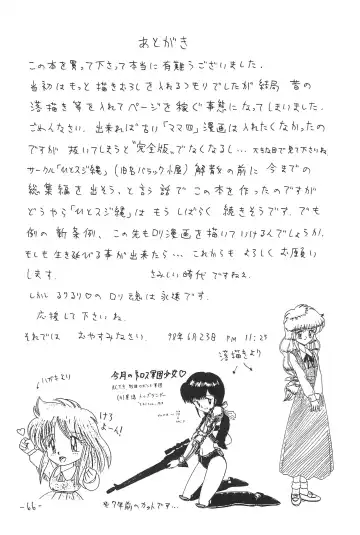 あとがき
この本を買って下さって本当に有難うございました.
当初はもっと描きおろしを入れるつもりでしたが結局 昔の
落描き等を入れてページを稼ぐ事態になってしまいました.
ごめんなさい. 出来れば古い「ママ四」漫画は入れたくなかったの
ですが 抜いてしまうと"完全版"でなくなるし…
サークル「ひとスジ縄」(旧名バラック小屋) 解散の前に 今までの
総集編を出そう、と言う話で この本を作ったのですが
どうやら「ひとスジ縄」は もう しばらく 続きそうです. でも
例の 新条例、この先もロリ漫画を描いていけるんでしょうか.
もしも生き延びる事が出来たら… これからも よろしく お願い
します. さみしい時代ですねぇ.
しかし るりるり♡の ロリ魂は永遠です.
応援して下さいね.
それでは おやすみなさい. 98年6月23日 PM 11:25
落描きより
ハガキより
けろ
よーん!
今月の
軍団少女♡
※7年前のカットです…
-66-